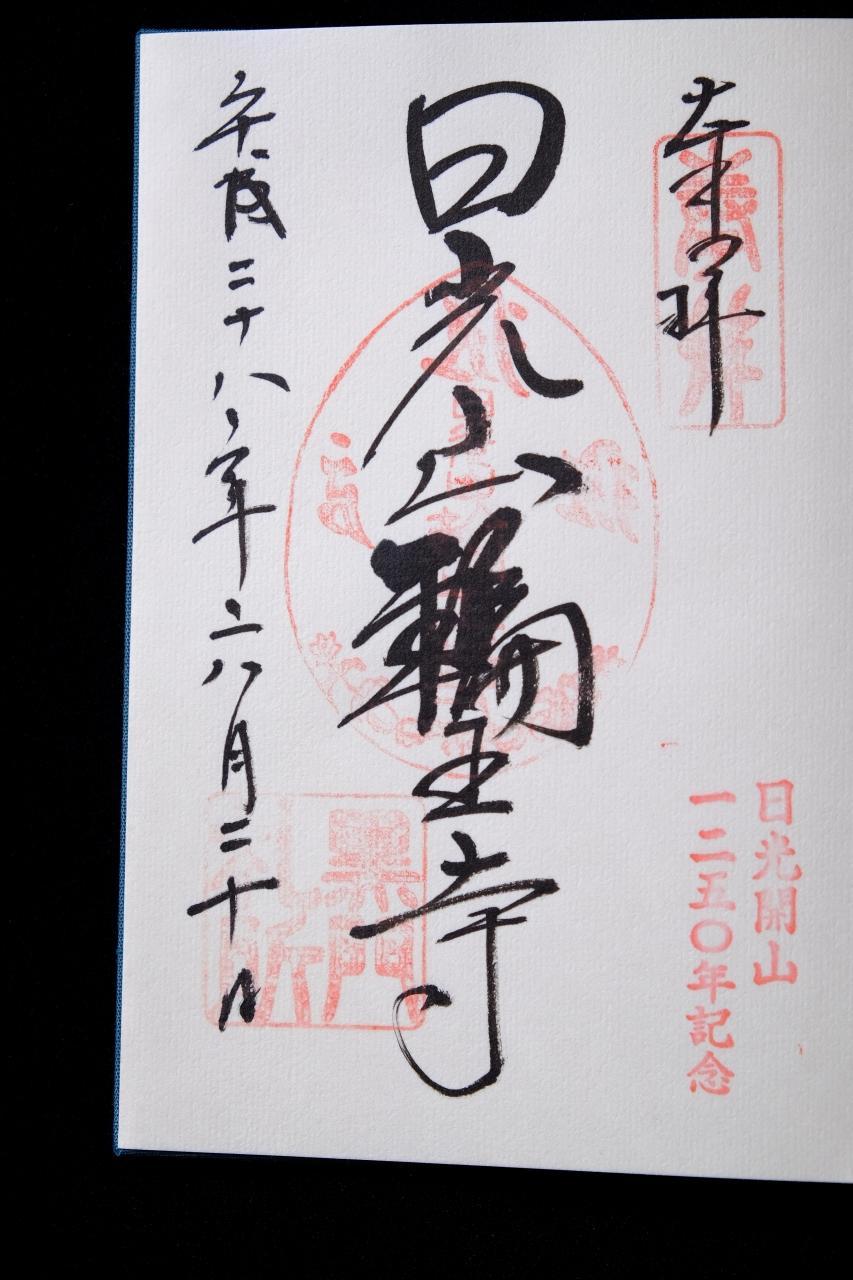 奉拝
日光開山
一二五〇年記念
日光山輪王寺
黒門
札所
平成二十八年六月二十日